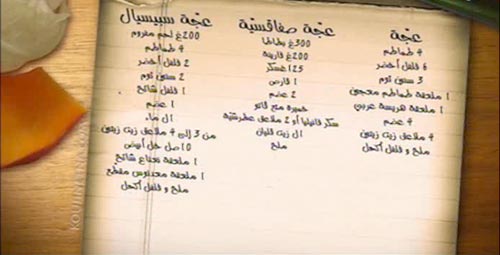 عجّة
4 طماطم
6 فلفل أخضر
3 سنين ثوم
1 ملعقة طماطم معجون
1 ملعقة هريسة عربي
4 عضم
4 ملاعق زيت زيتون
ملح و فلفل أكحل
عجّة صفاقسيّة
300غ بطاطا
200غ قارينة
125غسكر
1 قارص
2 عضم
خميرة متع قاتو
سكر فانيليا أو 2 ملاعق عطرشيّة
ال زيت قليان
ملح
عجّة سبيسيال
200غ لحم مفروم
4 طماطم
2 فلفل أخضر
2 سنين ثوم
1 فلفل شائح
1 عضم
ال ماء
من 3 إلى 4 ملاعق زيت زيتون
10صل خل أبيض
1 ملعقة نعناع شائح
1 ملعقة معدنوس مقطع
ملح و فلفل أكحل